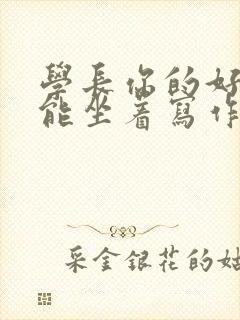 學長你的好
能坐着寫作
采金銀花的姑